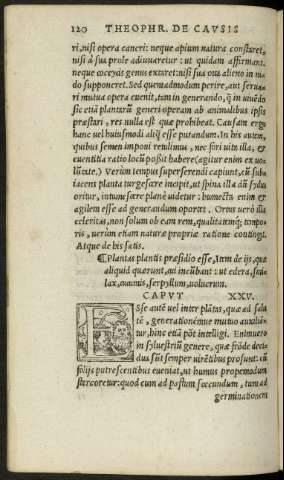 120 THEOPHR. DE CAVSIS
ri, nisi opera cancri: neque apium natura constaret,
nisi à sua prole adiuuaretur: ut quidam affirmant.
neque coccyis genus extaret: nisi sua oua alieno in ni-
do supponeret. Sed quemadmodum perire, aut serua-
ri mutua opera euenit, tum in generando, ꝗ in uiuẽdo
sic etiã plantarũ generi operam ab animalibus ipsis
præstari, res nulla est quæ prohibeat. Causam ergo
hanc uel huiusmodi aliꝗ̃ esse putandum. In his autem,
quibus semen imponi retulimus, nec fieri uitis illa, &
euentitia ratio locũ possit habere (agitur enim ex uo-
lũtate.) Verùm tempus superserendi capiunt, cũ suba
iacens planta turgescere incipit, ut spina illa dũ sydus
oritur, intumescere planè uidetur: humectũ enim &
agilem esse ad generandum oportet. Ortus uerò illa
celeritas, non solum ob eam rem, qualitatemq́; tempo-
ris, uerum etiam naturæ propriæ ratione contingit.
Atque de his satis.
¶ Plantas plantis præsidio esse, Irem de ijs, quæ
aliquid quærunt, cui incũbant: ut edera, smi-
lax, cucumis, serpyllum, uolucrum.
CAPVT XXV.
ESse autẽ uel inter plãtas, quæ ad salu
tẽ, generationémue mutuo auxiliẽ-
tur, hinc etiã põt intelligi. Enimuero
in syluestriũ genere, quæ frõde deci-
dua sũt semper uirẽtibus prosunt: cũ
folijs putrescentibus eueniat, ut humus propemodum
stercoretur: quod cum ad pastum faciendum, tum ad
germinationem